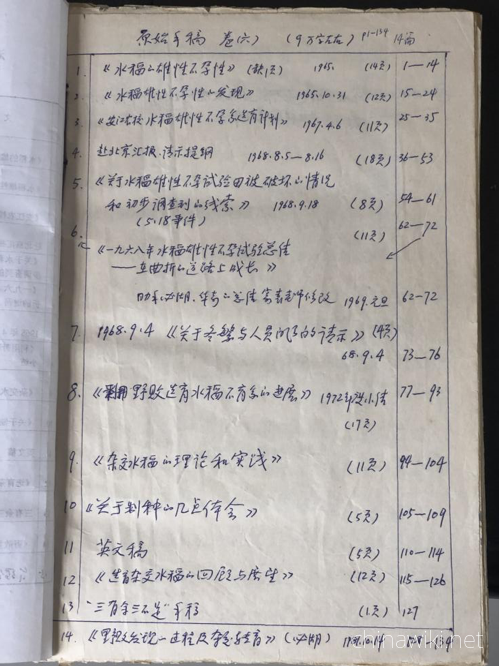 原始手稿 卷(六) (9万字左右) P1-134 14篇
1. 《水稻的雄性不孕性》 (缺1页) 1965. (14页) 1—14
2. 《水稻雄性不孕性的发现》 1965.10.31 (12页) 15—24
3. 水稻雄性不孕系选育计划》 1967.4.6 (11页) 25—35
4. 赴北京汇报、请示提纲 1968.8.5—8.16 (18页) 36—53
5. 《关于水稻雄性不孕试验田被破坏的情况
和初步调查到的线索》 1968.9.18 (8页) 54—61
(5.18事件)
6. (11页) 62—72
《一九六八年水稻雄性不孕试验总结
——在曲折的道路上成长》
1969.元旦 62—72
7. 1968.9.4 《关于冬繁与人员问题的请示》 (4页)
68.9.4 73—76
8. 《利用野败选育水稻不育系的进展》 1972年 (17页) 77—93
9. 《杂交水稻的理论和实践》 (11页) 94—104
10 《关于制种的几点体会》 (5页) 105—109
11 英文稿 (5页) 110—114
12 《选育杂交水稻的回顾与展望》 (12页) 115—126
13 "三有余三不足"手稿 (1页) 127
14. 《野败发现 128—134
chinawiki.net